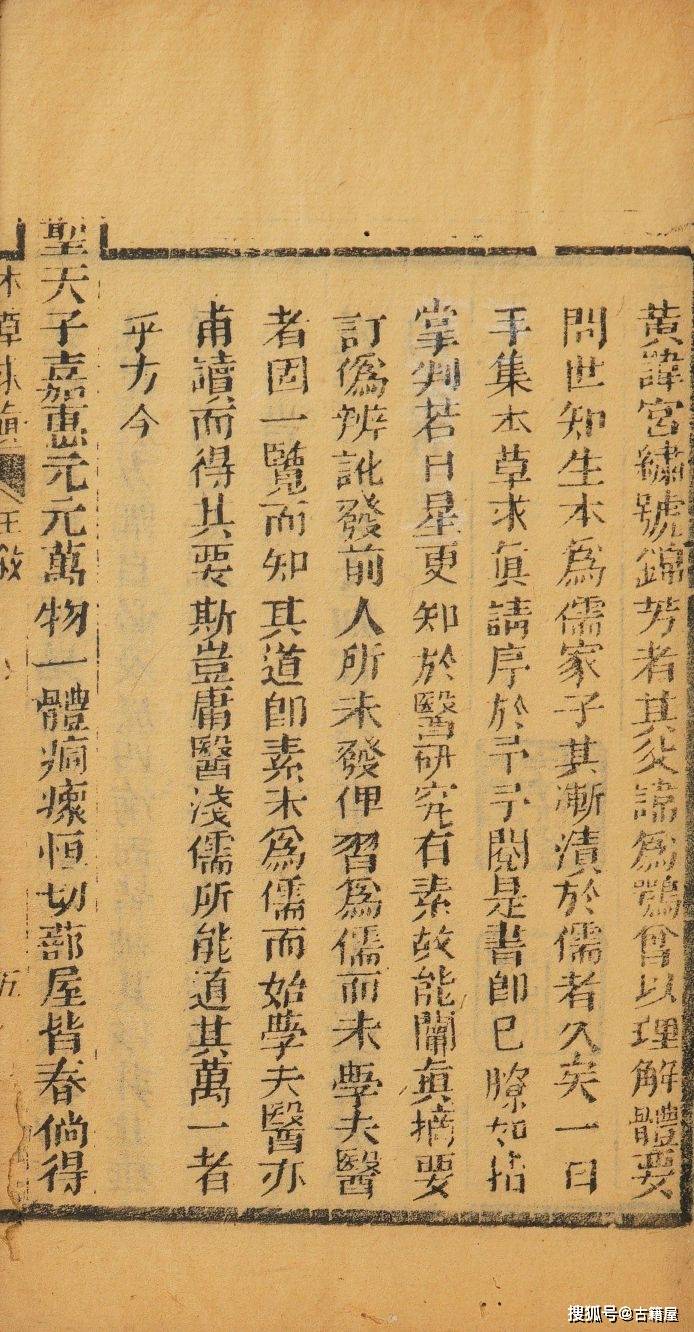 黃諱宮繡號錦芳者其父諱爲鶚曾以理解體要
問世知生本爲儒家子其漸漬於儒者久矣一日
手集本草求眞請序於予予閱是書卽已瞭如指
掌判若日星更知於醫研究有素故能闡眞摘要
訂僞辨訛發前人所未發俾習爲儒而未學夫醫
者因一覽而知其道卽素未爲儒而始學夫醫亦
甫讀而得其要斯豈庸醫淺儒所能道其萬一者
乎方今
聖天子嘉惠元元萬物一體痌瘝恒切蔀屋皆春倘得
本草求眞
王敘
五
搜狐号@古籍屋